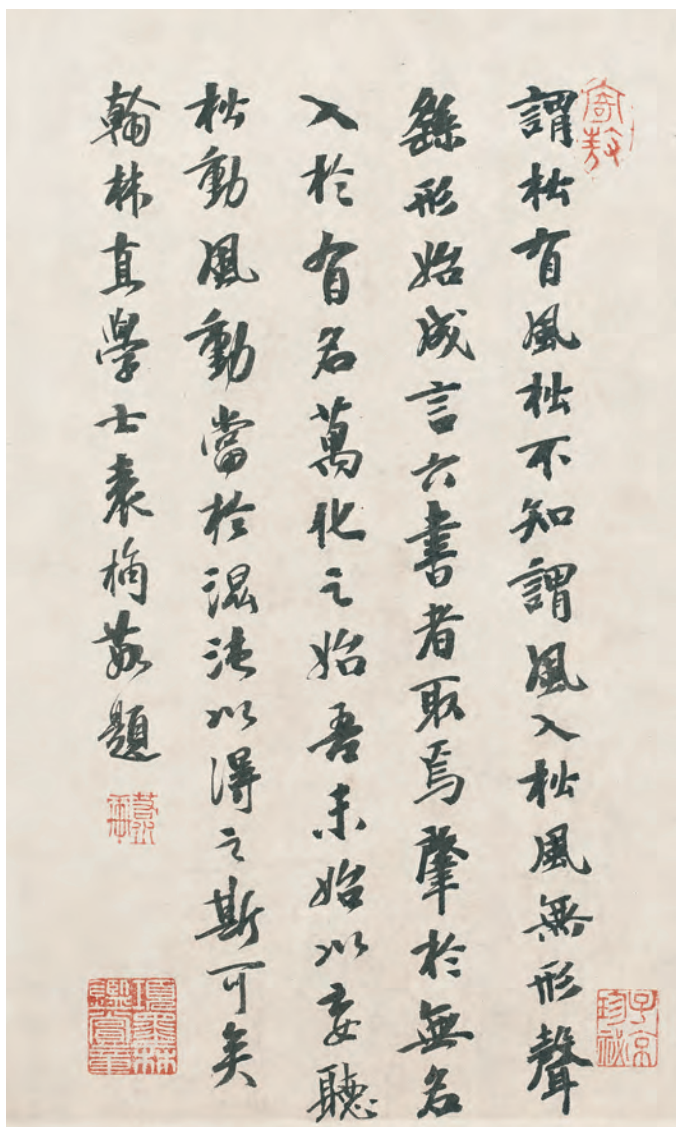 謂松有風松不知謂風入松風無形聲
繇形始成言六書者取焉肇於無名
入於有名萬化之始吾未始以妄聽
松動風動當於混沌以得之斯可矣
翰林直學士袁桷敬題
子京珍祕
項墨林鑑賞章